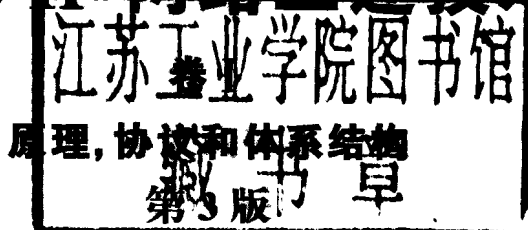 江苏工业学院图书馆
卷
原理，协议和体系结构
藏书章
第3版